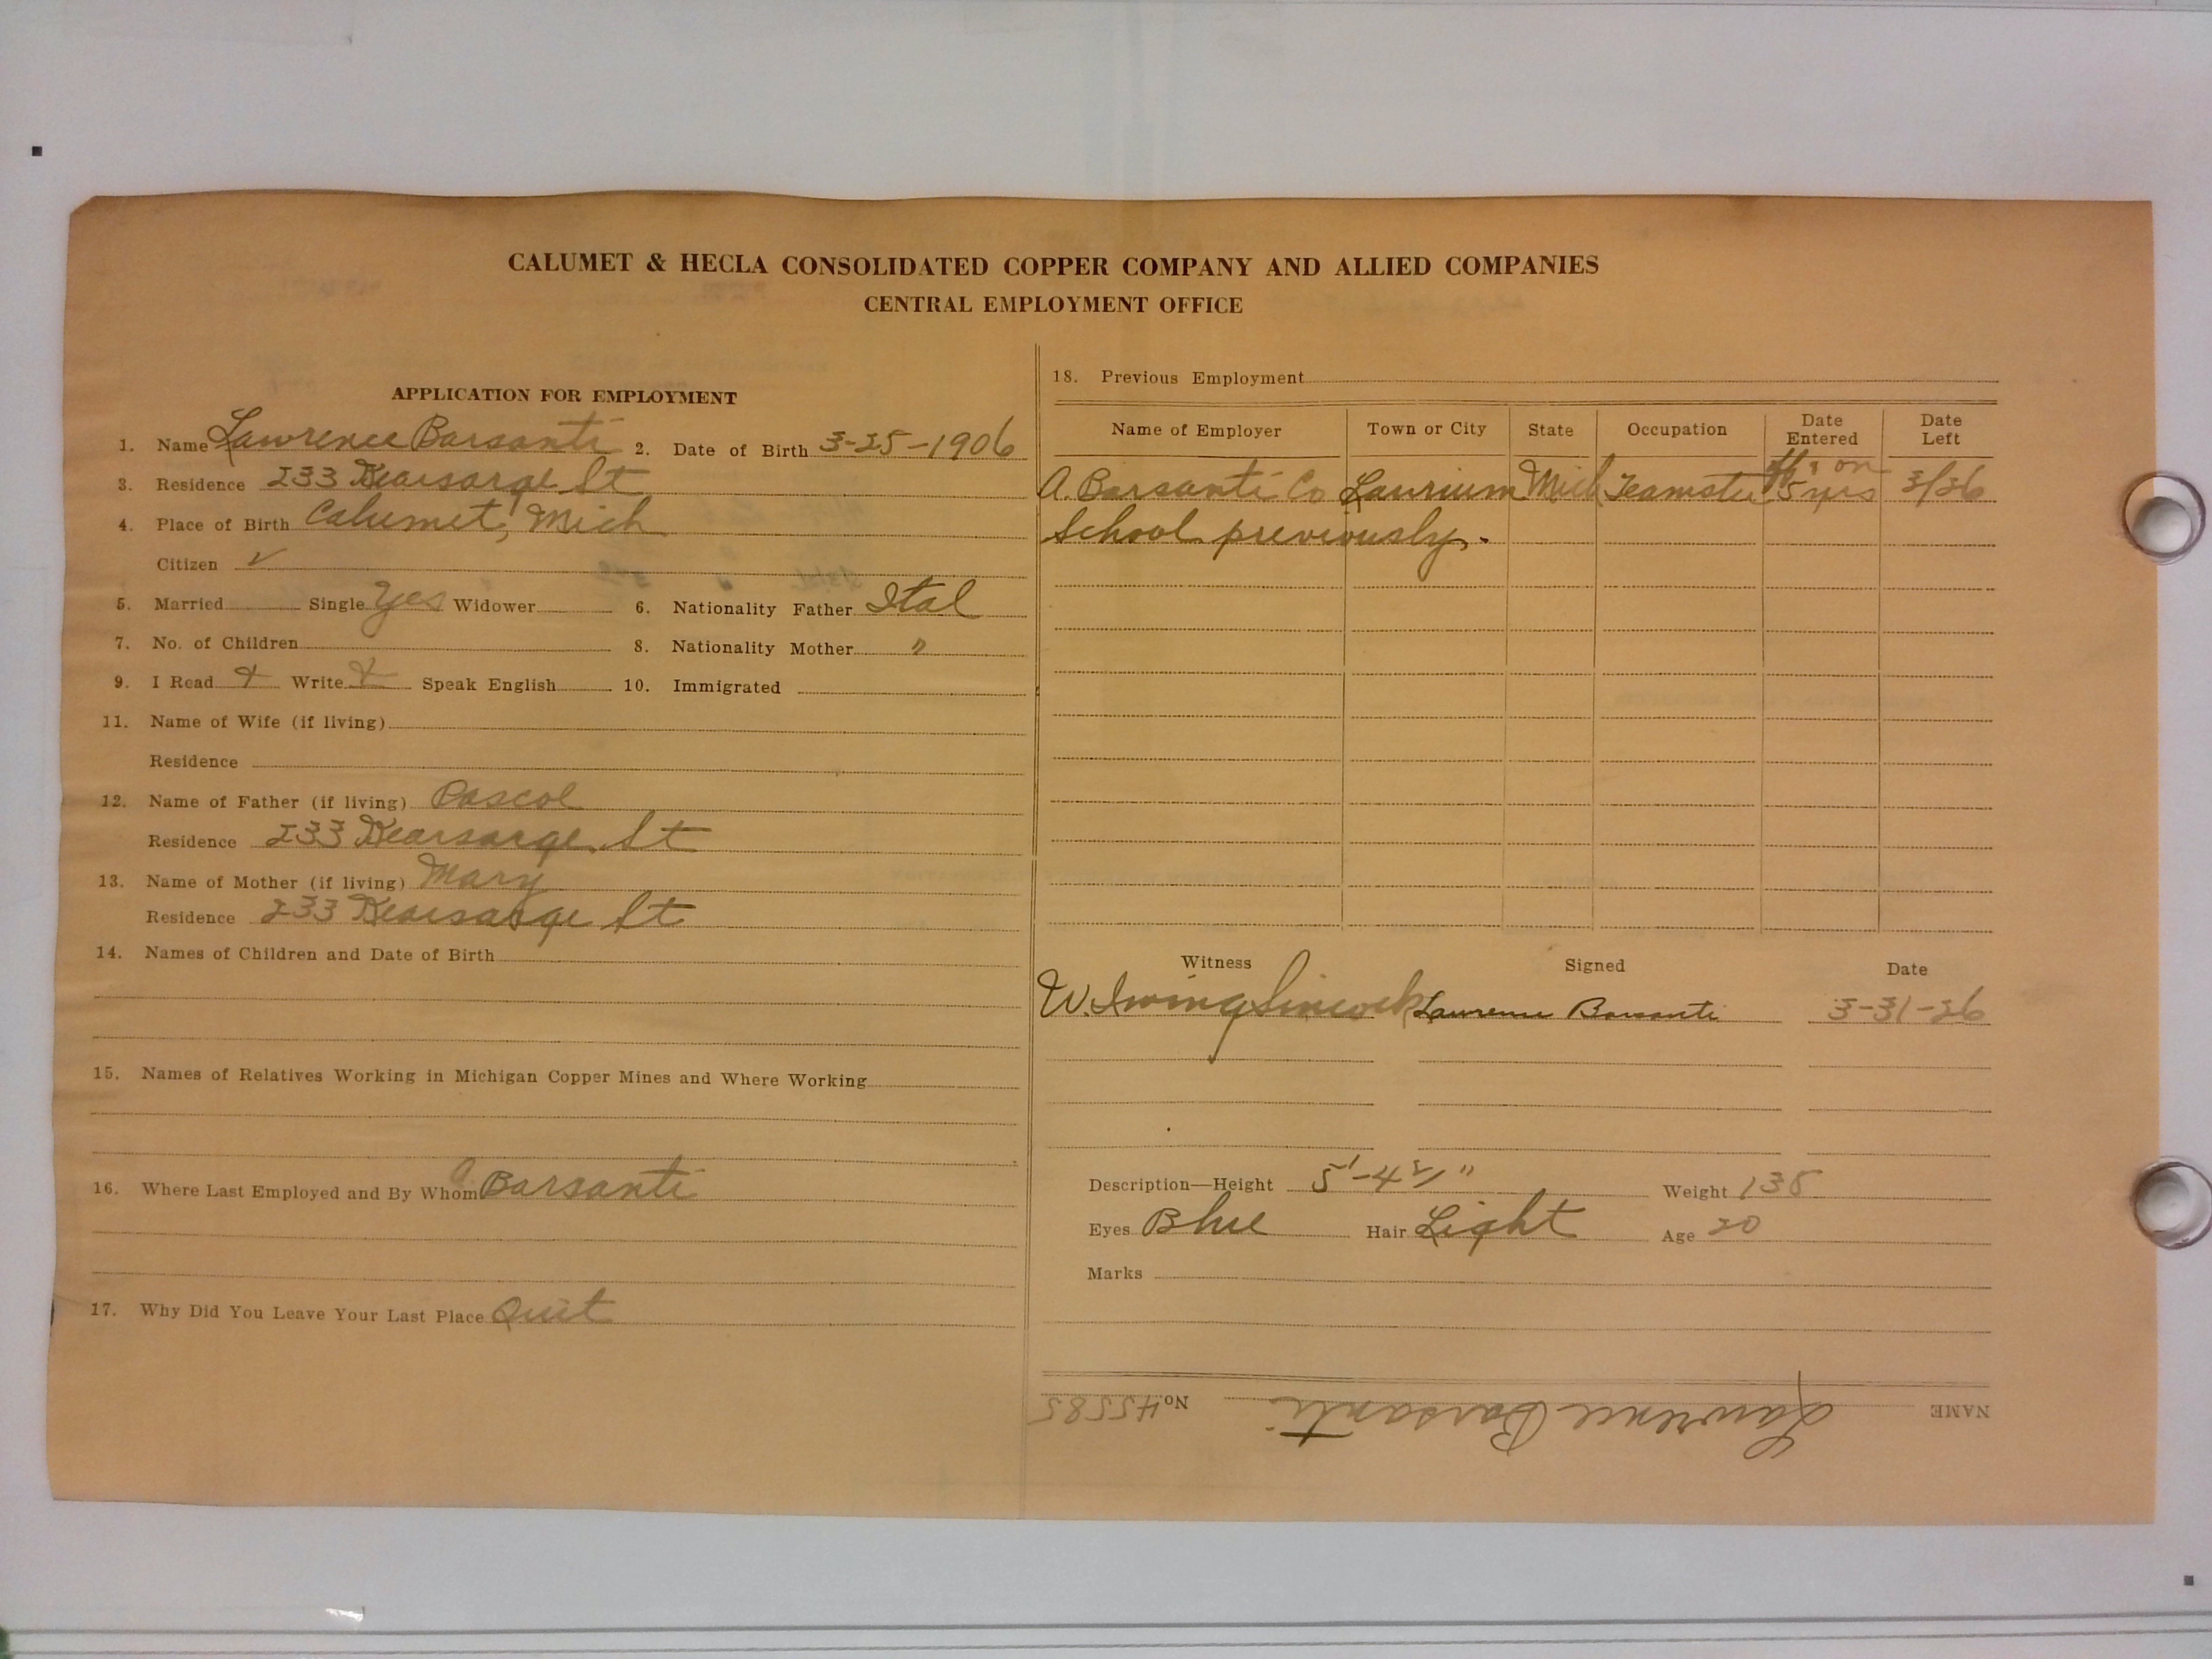 CALUMET & HECLA CONSOLIDATED COPPER COMPANY AND ALLIED COMPANIES
CENTRAL EMPLOYMENT OFFICE
APPLICATION FOR EMPLOYMENT
1. Name Lawrence Barsanti 2. Date of Birth 3-25-1906
3. Residence 233 Kearsarge St
4. Place of Birth Calumet, Mich
Citizen ✓
5. Married Single yes Widower 6. Nationality Father Ital
7. No. of Children 8. Nationality Mother "
9. I Read + Write + Speak English 10. Immigrated
11. Name of Wife (if living)
Residence
12. Name of Father (if living) Pascol
Residence 233 Kearsarge St
13. Name of Mother (if living) Mary
Residence 233 Kearsarge St
14. Names of Children and Date of Birth
15. Names of Relatives Working in Michigan Copper Mines and Where Working
16. Where Last Employed and By Whom A Barsanti
17. Why Did You Leave Your Last Place Quit
18. Previous Employment
Name of Employer Town or City State Occupation Date Entered Date Left
A. Barsanti Co Laurium Mich Teamster off & on 5 yrs 3/26
School previously.
Witness Signed Date
W. Irving Sincock Lawrence Barsanti 3-31-26
Description—Height 5'-4 1/2" Weight 138
Eyes Blue Hair Light Age 20
Marks
NAME Lawrence Barsanti No. 45585